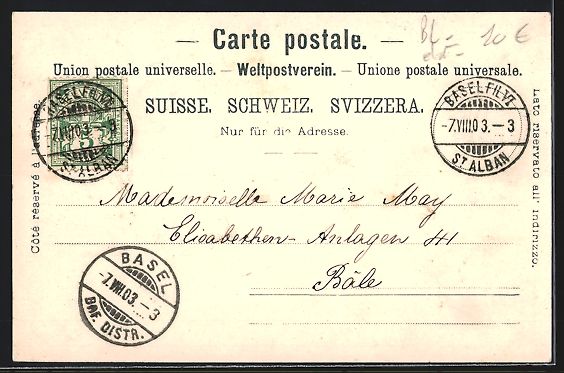 — Carte postale. —
10 €
Union postale universelle. – Weltpostverein. – Unione postale universale.
SUISSE. SCHWEIZ. SVIZZERA.
Nur für die Adresse.
Côté réservé à l'adresse.
Lato riservato all' indirizzo.
BASEL FIL. VI
-7.VIII.03.-3
ST. ALBAN
BASEL FIL. VI
-7.VIII.03.-3
ST. ALBAN
Mademoiselle Marie May
Elisabethen-Anlagen 44
Bâle
BASEL
-7.VIII.03.-3
BRF. DISTR.